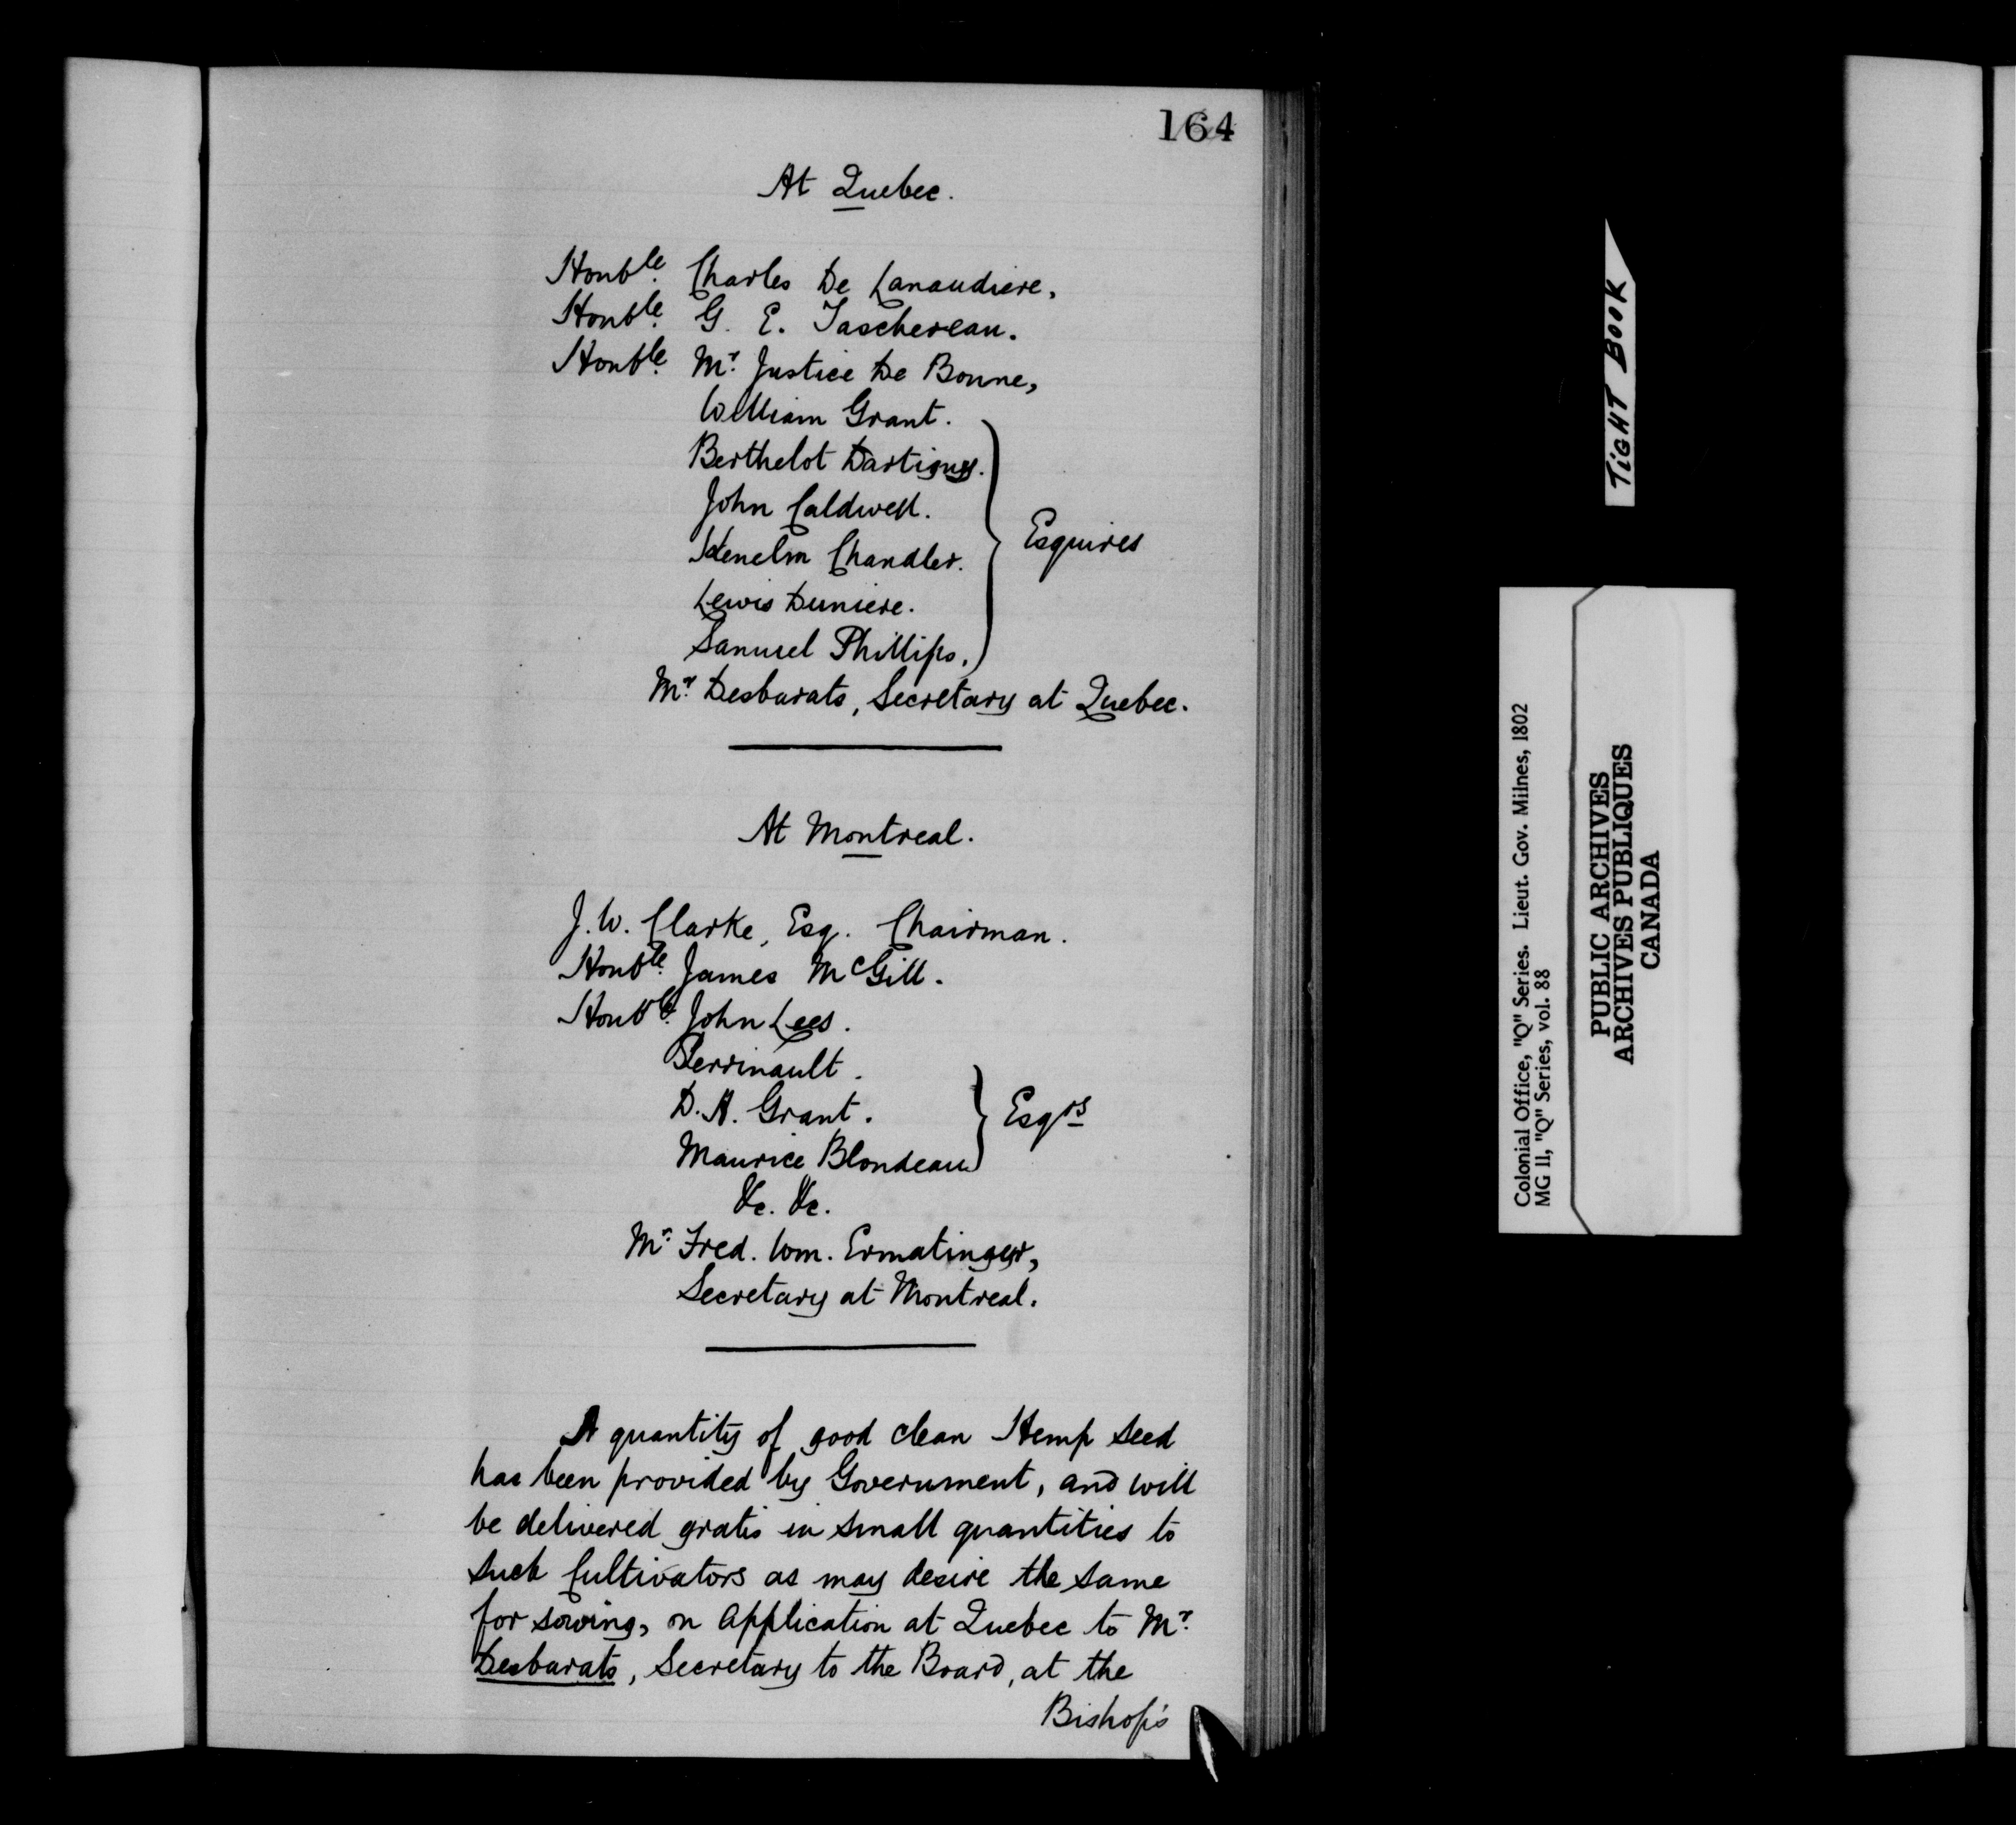 164
At Quebec.
Honble. Charles De Lanaudiere,
Honble. G. E. Taschereau.
Honble. Mr. Justice De Bonne,
William Grant.
Berthelot Dartigny.
John Caldwell.
Kenelm Chandler.
Lewis Duniere.
Samuel Phillips.
Esquires
Mr. Desbarats, Secretary at Quebec.
At Montreal.
J. W. Clarke, Esq. Chairman.
Honble. James McGill.
Honble. John Lees.
Perrinault.
D. A. Grant.
Maurice Blondeau
Esqrs
&c. &c.
Mr. Fred. Wm. Ermatinger,
Secretary at Montreal.
A quantity of good clean Hemp seed
has been provided by Government, and will
be delivered gratis in small quantities to
such Cultivators as may desire the same
for sowing, on application at Quebec to Mr.
Desbarats, Secretary to the Board, at the
Bishop's
TIGHT BOOK
Colonial Office, "Q" Series. Lieut. Gov. Milnes, 1802
MG 11, "Q" Series, vol. 88
PUBLIC ARCHIVES
ARCHIVES PUBLIQUES
CANADA